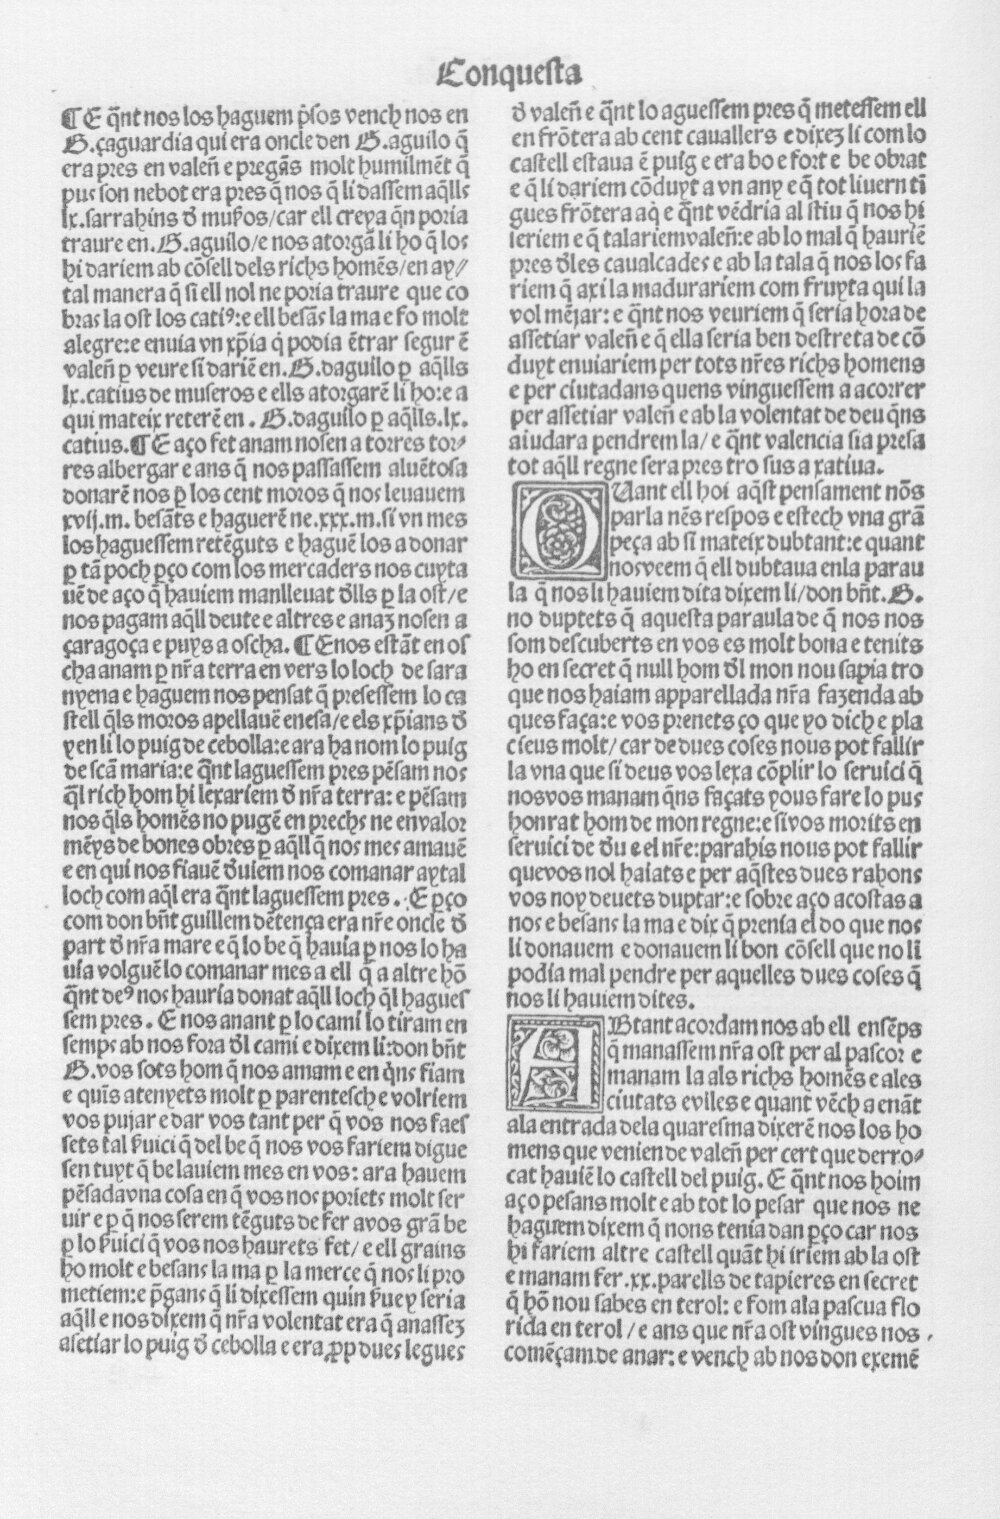 Conquesta
¶E q̄nt nos los haguem p̃sos vench nos en
G.çaguardia qui era oncle den G.aguilo q̄
era pres en valeñ e pregãs molt humilmẽt q̄
pus son nebot era pres q̄ nos q̄ li dassem aq̄lls
lx.sarrahins ď mus̃os/car ell creya q̄n poria
traure en.G.aguilo/e nos atorgã li ho q̄ los
hi dariem ab cõsell dels richs homẽs/en ay/
tal manera q̄ si ell nol ne poria traure que co
bras la ost los catiꝰ:e ell besãs la ma e fo molt
alegre:e enuia vn xp̃ia q̄ podia ẽtrar segur ẽ
valeñ ꝑ veure si dariẽ en.G.daguilo ꝑ aq̄lls
lx.catius de museros e ells atorgarẽ li ho:e a
qui mateix reterẽ en.G.daguilo ꝑ aq̄lls.lx.
catius.¶E aço fet anam nosen a torres tor/
res albergar e ans q̄ nos passassem aluẽtosa
donarẽ nos ꝑ los cent moros q̄ nos leuauem
xvij.m. besãts e haguerẽ ne.xxx.m.si vn mes
los haguessem retẽguts e haguẽ los a donar
ꝑ tã poch ꝑço com los mercaders nos cuyta
uẽ de aço q̄ hauiem manlleuat ďlls ꝑ la ost/e
nos pagam aq̄ll deute e altres e anaz nosen a
çaragoça e puys a oscha.¶E nos estãt en os
cha anam ꝑ nr̃a terra en vers lo loch de sara
nyena e haguem nos pensat q̄ presessem lo ca
stell q̄ls moros apellauẽ enesa/e els xp̃ians ď
yen li lo puig de cebolla:e ara ha nom lo puig
de scã maria:e q̄nt laguessem pres pẽsam nos
q̄l rich hom hi lexariem ď nr̃a terra:e pẽsam
nos q̄ls homẽs no pugẽ en prechs ne en valor
mẽys de bones obres ꝑ aq̄ll q̄ nos mes amauẽ
e en qui nos fiauẽ ďuiem nos comanar aytal
loch com aq̄l era q̄nt laguessem pres. E ꝑço
com don bñt guillem dẽtença era nr̃e oncle ď
part ď nr̃a mare e q̄ lo be q̄ hauia ꝑ nos lo ha
uia volguẽ lo comanar mes a ell q̄ a altre hõ
q̄nt deꝰ nos hauria donat aq̄ll loch q̄l hagues
sem pres. E nos anant ꝑ lo cami lo tiram en
semps ab nos fora ďl cami e dixem li:don bñt
G.vos sots hom q̄ nos amam e en q̃ns fiam
e quĩs atenyets molt ꝑ parentesch e volriem
vos pujar e dar vos tant per q̄ vos nos faes
sets tal s̃uici q̄ del be q̄ nos vos fariem digue
sen tuyt q̄ be lauiem mes en vos: ara hauem
pẽsada vna cosa en q̄ vos nos poriets molt ser
uir e ꝑ q̄ nos serem tẽguts de fer a vos grã be
ꝑ lo s̃uici q̄ vos nos haurets fet/e ell grains
ho molt e besans la ma ꝑ la merce q̄ nos li pro
metiem:e p̃gans q̄ li dixessem quin s̃uey seria
aq̄ll e nos dixem q̄ nr̃a volentat era q̄ anassez
asetiar lo puig ď cebolla e era ꝓp dues legues
ď valeñ e q̄nt lo aguessem pres q̄ metessem ell
en frõtera ab cent cauallers e dixez li com lo
castell estaua ẽ puig e era bo e fort e be obrat
e q̄ li dariem cõduyt a vn any e q̄ tot liuern tĩ
gues frõtera aq̃ e q̄nt vẽdria al stiu q̄ nos hi
ieriem e q̄ talariem valeñ:e ab lo mal q̄ hauriẽ
pres ďles caualcades e ab la tala q̄ nos los fa
riem q̄ axi la madurariem com fruyta qui la
vol mẽjar: e q̄nt nos veuriem q̄ seria hora de
assetiar valeñ e q̄ ella seria ben destreta de cõ
duyt enuiariem per tots nr̃es richs homens
e per ciutadans quens vinguessem a acorrer
per assetiar valeñ e ab la volentat de deu q̄ns
aiudara pendrem la/e q̄nt valencia sia presa
tot aq̄ll regne sera pres tro sus a xatiua.
QUant ell hoi aq̄st pensament nõs
parla nẽs respos e estech vna grã
peça ab si mateix dubtant:e quant
nos veem q̄ ell dubtaua en la parau
la q̄ nos li hauiem dita dixem li/don bñt.G.
no duptets q̄ aquesta paraula de q̄ nos nos
som descuberts en vos es molt bona e tenits
ho en secret q̄ null hom ďl mon nou sapia tro
que nos haiam apparellada nr̃a fazenda ab
ques faça:e vos prenets ço que yo dich e pla
cieus molt/car de dues coses nous pot fallir
la vna que si deus vos lexa cõplir lo seruici q̄
nos vos manam q̄ns façats yous fare lo pus
honrat hom de mon regne:e si vos morits en
seruici de ďu e el nr̃e:parahis nous pot fallir
que vos nol haiats e per aq̄stes dues rahons
vos noy deuets duptar:e sobre aço acostas a
nos e besans la ma e dix q̄ prenia el do que nos
li donauem e donauem li bon cõsell que no li
podia mal pendre per aquelles dues coses q̄
nos li hauiem dites.
ABtant acordam nos ab ell ensẽps
q̄ manassem nr̃a ost per al pascor e
manam la als richs homẽs e a les
ciutats e viles e quant vẽch a enãt
a la entrada dela quaresma dixerẽ nos los ho
mens que venien de valeñ per cert que derro/
cat hauiẽ lo castell del puig. E q̄nt nos hoim
aço pesans molt e ab tot lo pesar que nos ne
haguem dixem q̄ nons tenia dan ꝑço car nos
hi fariem altre castell quãt hi iriem ab la ost
e manam fer.xx.parells de tapieres en secret
q̄ hõ nou sabes en terol: e fom ala pascua flo
rida en terol/e ans que nr̃a ost vingues nos
comẽçam de anar:e vench ab nos don exemẽ